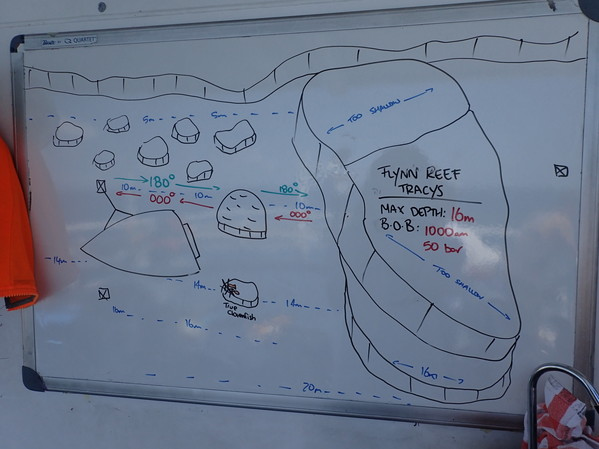 QUARTET
5m
5m
TOO SHALLOW
180°
180°
10m
000°
10m
10m
000°
FLYNN REEF
TRACYS
MAX DEPTH: 16m
B.O.B: 1000am
50 bar
TOO SHALLOW
14m
14m
14m
True
Clownfish
16m
16m
16m
20m